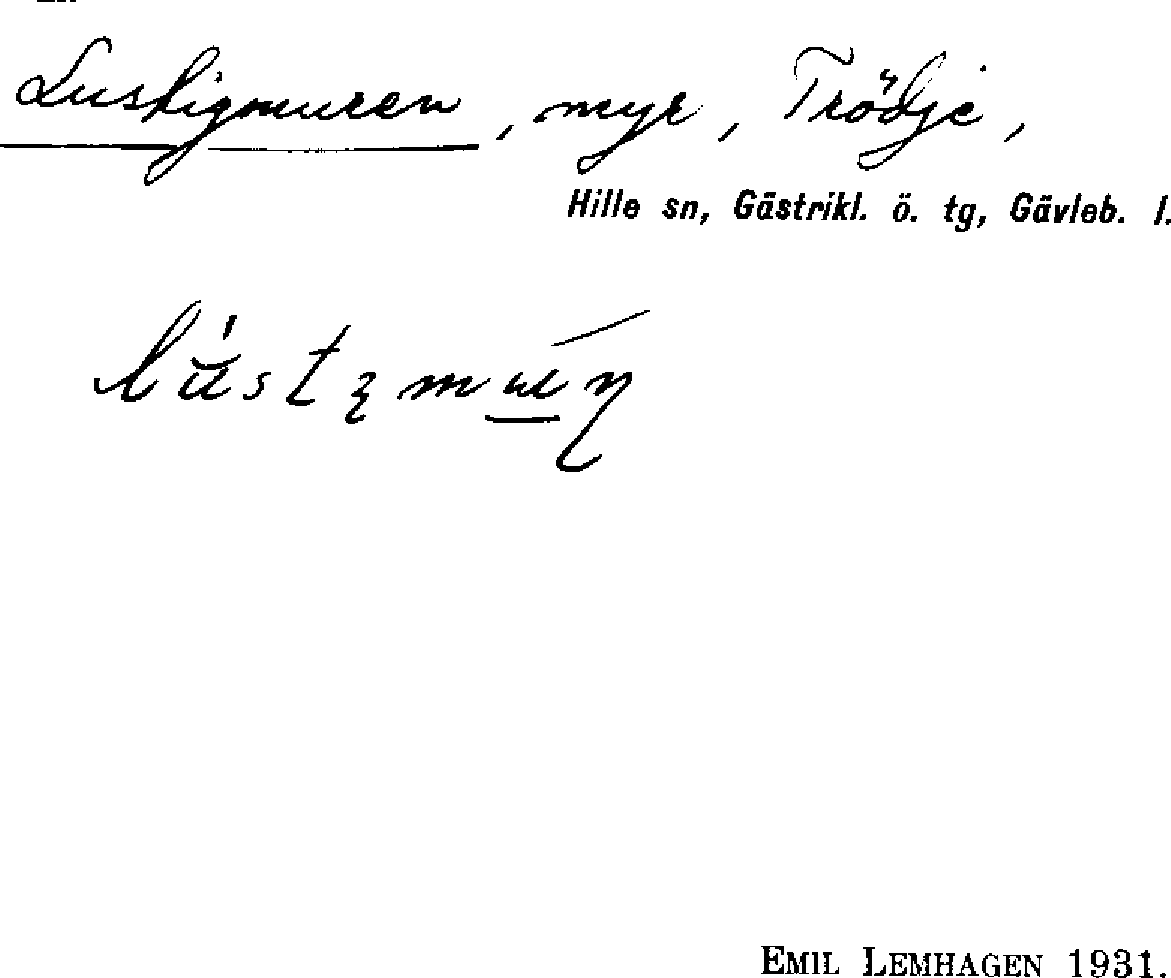 Lustigmuren, myr, Trödje,
Hille sn, Gästrikl. ö. tg, Gävleb. l.
EMIL LEMHAGEN 1931.